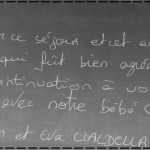 ce séjour et cet a
qui fût bien agréa
ontinuation à vo
avec notre bébé
et Eva CIALDELLA